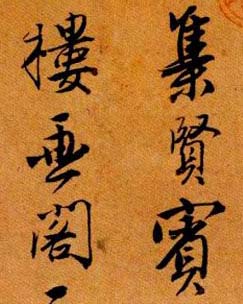 集賢賓
樓臺閣